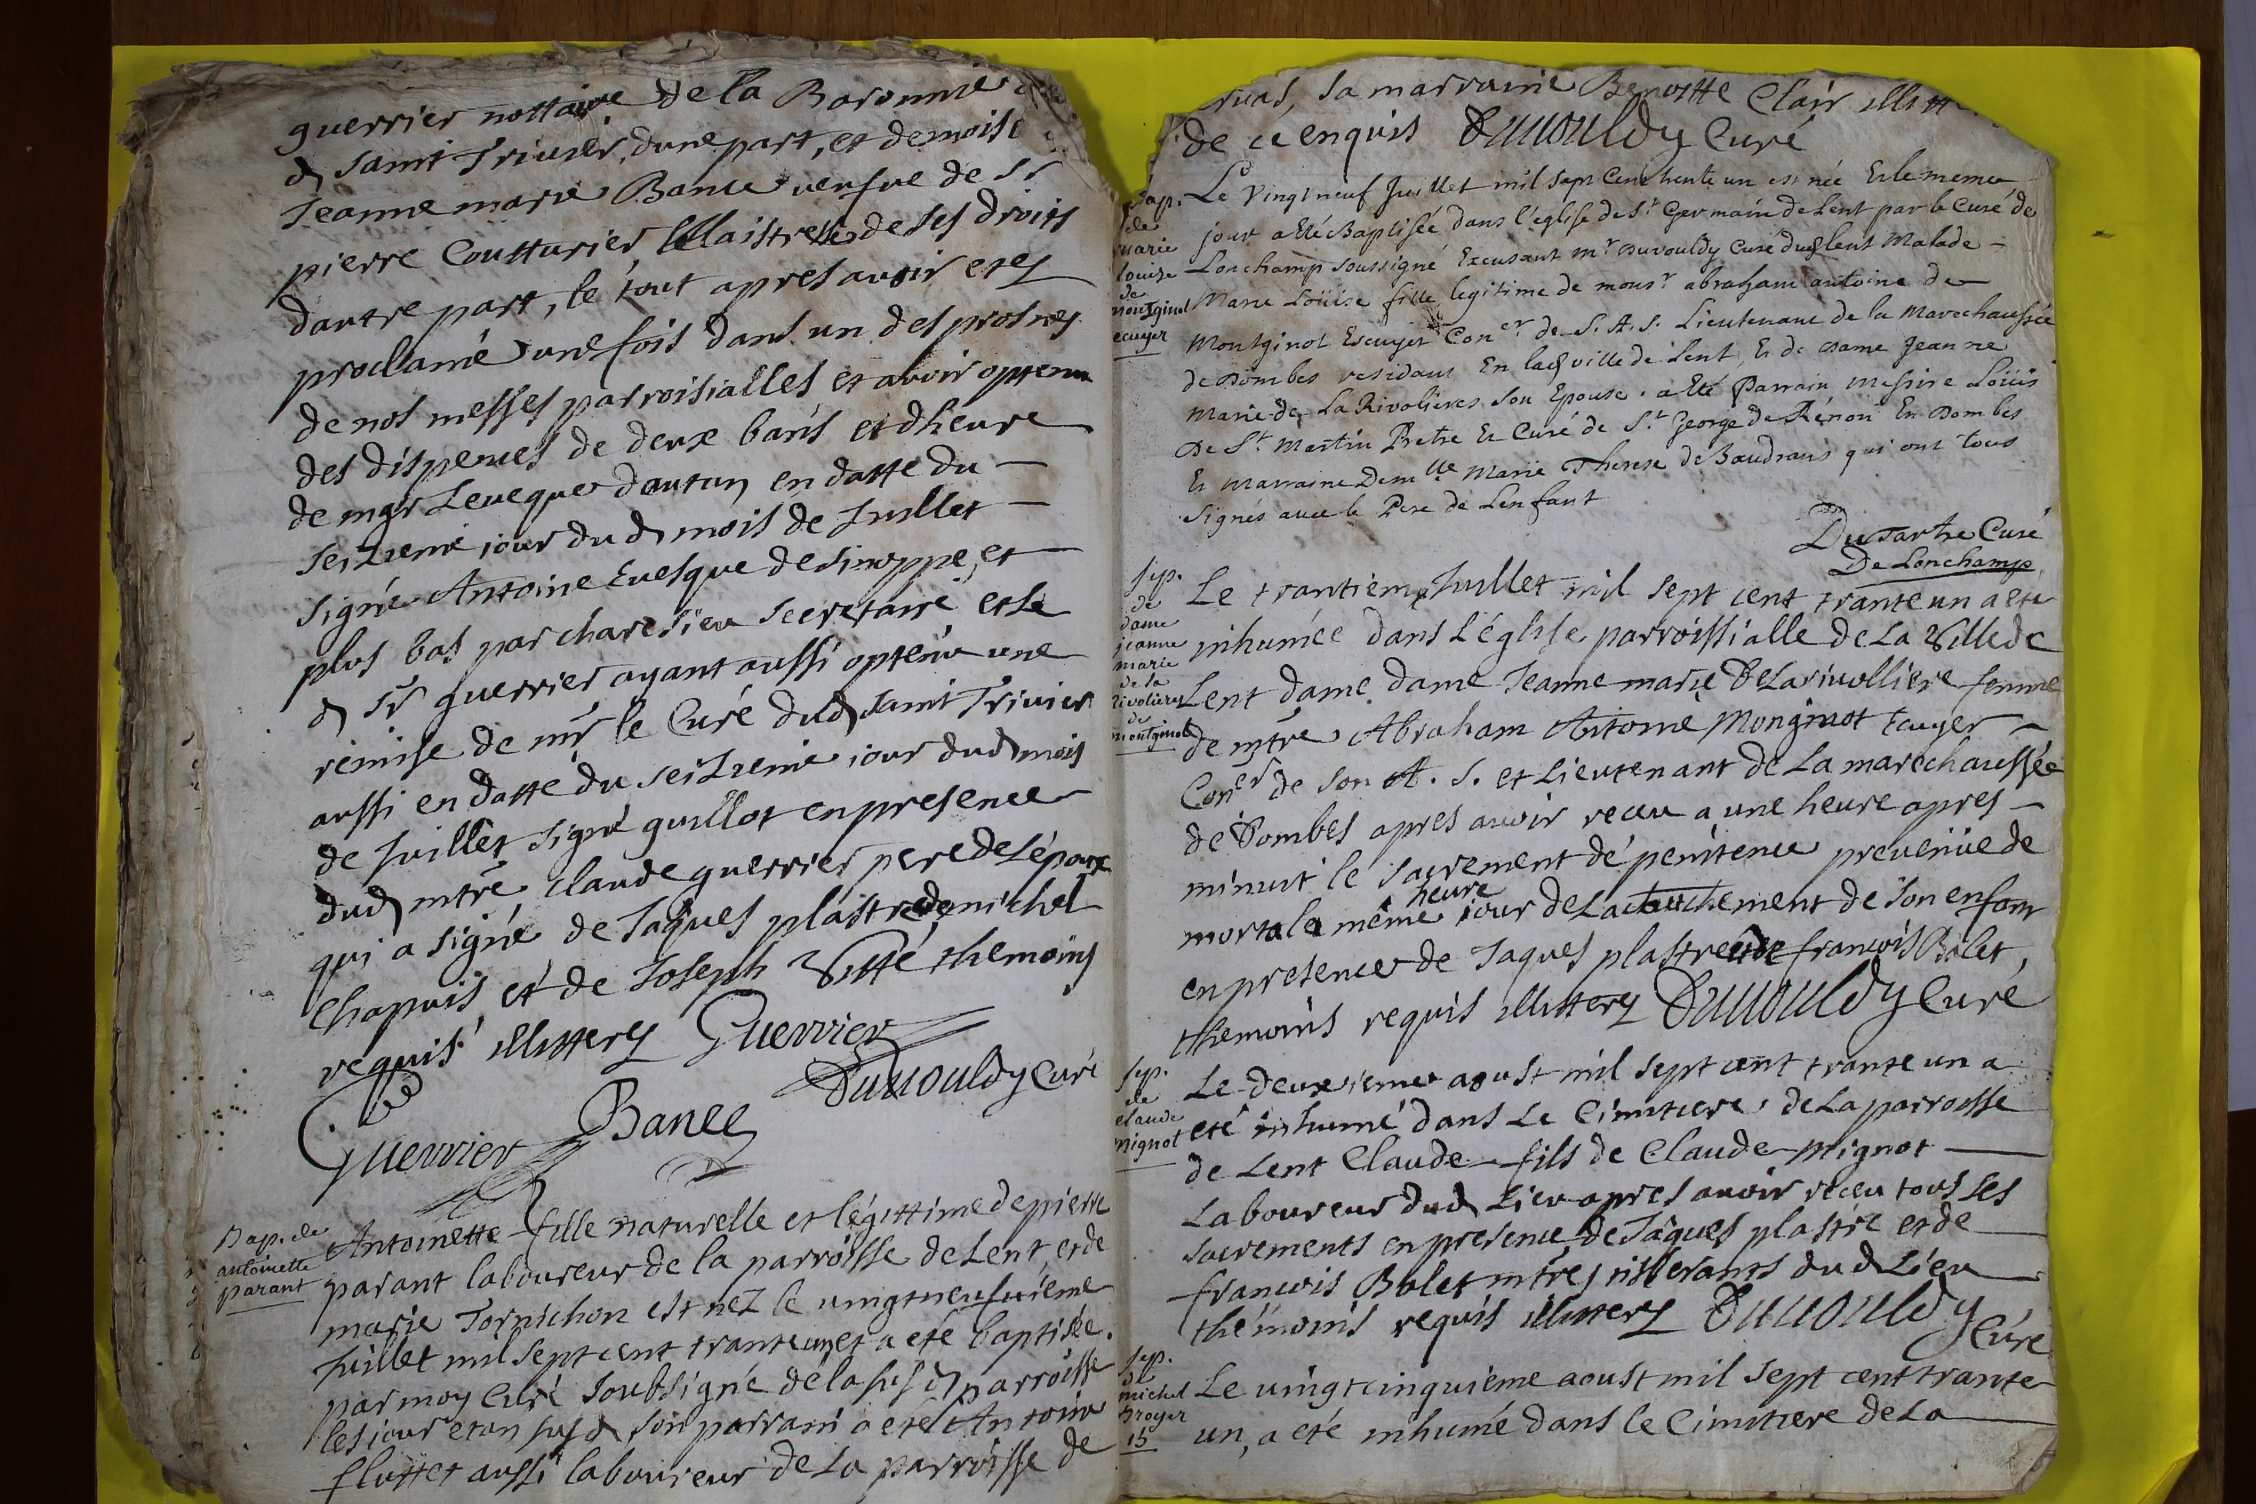 guerrier nottaire de la Baronnie
d Saint Trivier, dune part, et demoise
Jeanne marie Banse veufve de Sr
pierre Coutturier, Maistresse de ses droits
dautre part, le tout apres avoir etez
proclamé une fois dans un des prosnes
de nos messes parroisialles et avoir optenu
des dispences de deux bans et dheure
de mgr Leveque dautun en datte du
seizieme jour du d mois de Juillet
signé Antoine Evesque de Sinoppe, et
plus bas par charesieu secretaire et le
d Sr guerrier ayant aussi optenu une
remise de mr le Curé dud Saint Trivier
aussi en datte du seizieme jour dud mois
de Juillet signé guillot en presence
dud mtre claude guerrier pere de Lépoux
qui a signé de Jaques plastre de michel
Chapuis et de Joseph Vitté themoins
requis illitterez Guerrier
Duvouldy Curé
Guerrier Banse
Bap. de
antoinette
parant
Antoinette fille naturelle et légittime de pierre
parant laboureur de la parroisse de Lent, et de
marie Tornichon est nez le vingtneufvieme
Juillet mil sept cent trante un et a eté baptisée
par moy Curé Soubsigné de la sus d parroisse
les jour et an sus d son parrain a eté Antoine
fluttet aussi laboureur de La parroisse de
sa marraine Benoitte Clair illitt
de ce enquis Duvouldy Curé
Bap.
de
marie
louise
de
montginot
ecuyer
Le Vingt neuf Juillet mil Sept Cent trente un est née Et le meme
jour a Eté Baptisée dans l'église de St Germain de Lent par le Curé de
Lonchamp soussigné Excusant mr Duvouldy Curé dud Lent Malade
Marie Loüise fille legitime de monsr abraham antoine de
Montginot Escuyer Coner de S. A. S. Lieutenant de la Marechaussée
de Dombes residant En lad ville de Lent, Et de dame Jeanne
Marie de La Rivolieres Son Epouse. a Eté Parrain messire Loüis
De St Martin Pretre Et Curé de St George de Rénon En Dombes
Et Marraine Demlle Marie Therese de Baudrans qui ont tous
Signés avec le Pere de Lenfant
Du Tartre Curé
De Lonchamp
sep.
de
dame
jeanne
marie
de la
rivoliere
de
montginot
Le trantieme Juillet mil sept cent trante un a eté
inhumée dans L'église parroissialle de La Ville de
Lent dame dame Jeanne marie De Larivolliere femme
de mtre Abraham Antoine Monginot Ecuyer
Coner de son A. S. et Lieutenant de La marechaussée
de Dombes apres avoir receu a une heure apres
minuit le sacrement de penitence prevenüe de
heure
mort a la même jour de Lacouchement de son enfant
en presence de Jaques plastre et de francois Bolet,
themoins requis illitterez Duvouldy Curé
sep.
de
claude
mignot
Le deuxieme aoust mil sept cent trante un a
eté inhumé dans Le Cimitiere de La parroisse
de Lent Claude fils de Claude mignot
Laboureur dud Lieu apres avoir receu tous ses
sacrements en presence de Jaques plastre et de
francois Bolet mtres tisserants dud Lieu
themoins requis illitterez Duvouldy
Curé
sep.
de
michel
broyer
15
Le vingtcinquieme aoust mil sept cent trante
un, a eté inhumé dans le Cimitiere de La